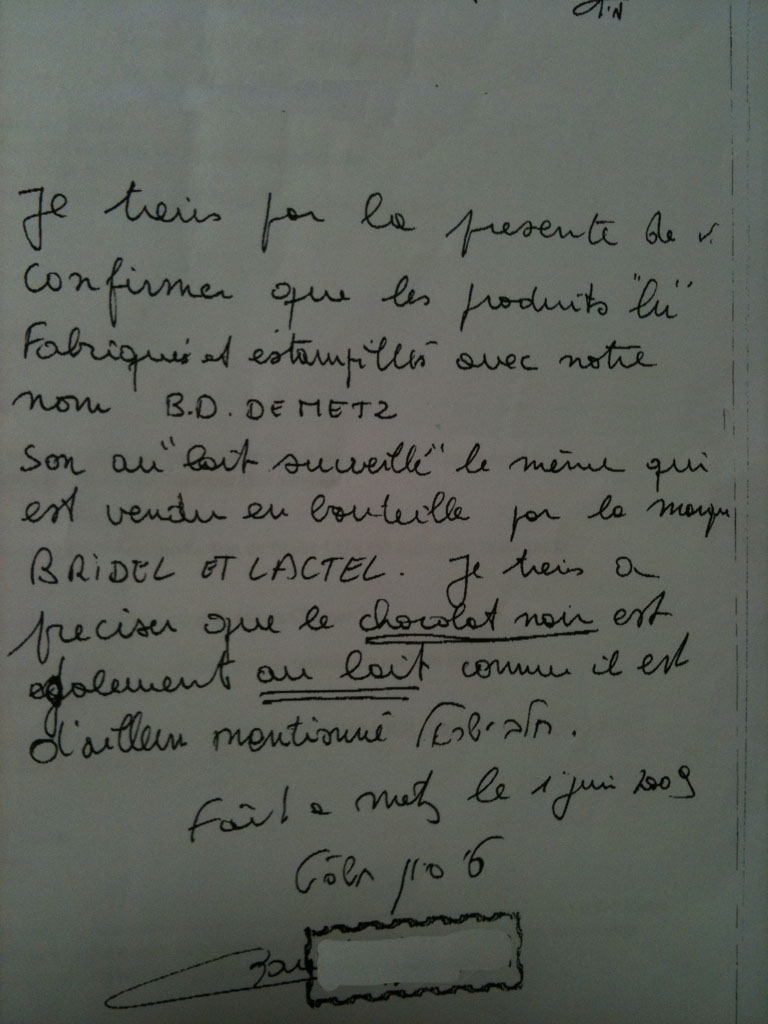 Je tiens par la presente de v.
Confirmer que les produits "lu"
Fabriqués et estampillés avec notre
nom B.D. DE METZ
Son au "lait surveillé" le même qui
est vendu en bouteille par la marque
BRIDEL ET LACTEL. Je tiens a
preciser que le chocolat noir est
egalement au lait comme il est
d'ailleur mentionné חלב ישראל.
Fait a Metz le 1 juin 2009
ט' סיון